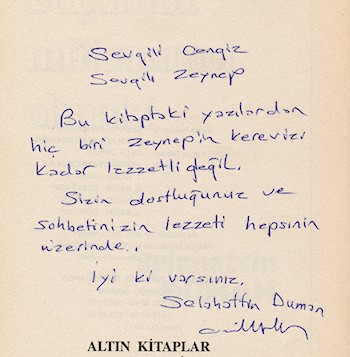 Sevgili Cengiz
Sevgili Zeynep
Bu kitaptaki yazılardan
hiç biri Zeynep'in kerevizi
kadar lezzetli değil.
Sizin dostluğunuz ve
sohbetinizin lezzeti hepsinin
üzerinde..
İyi ki varsınız.
Selahattin Duman
ALTIN KİTAPLAR